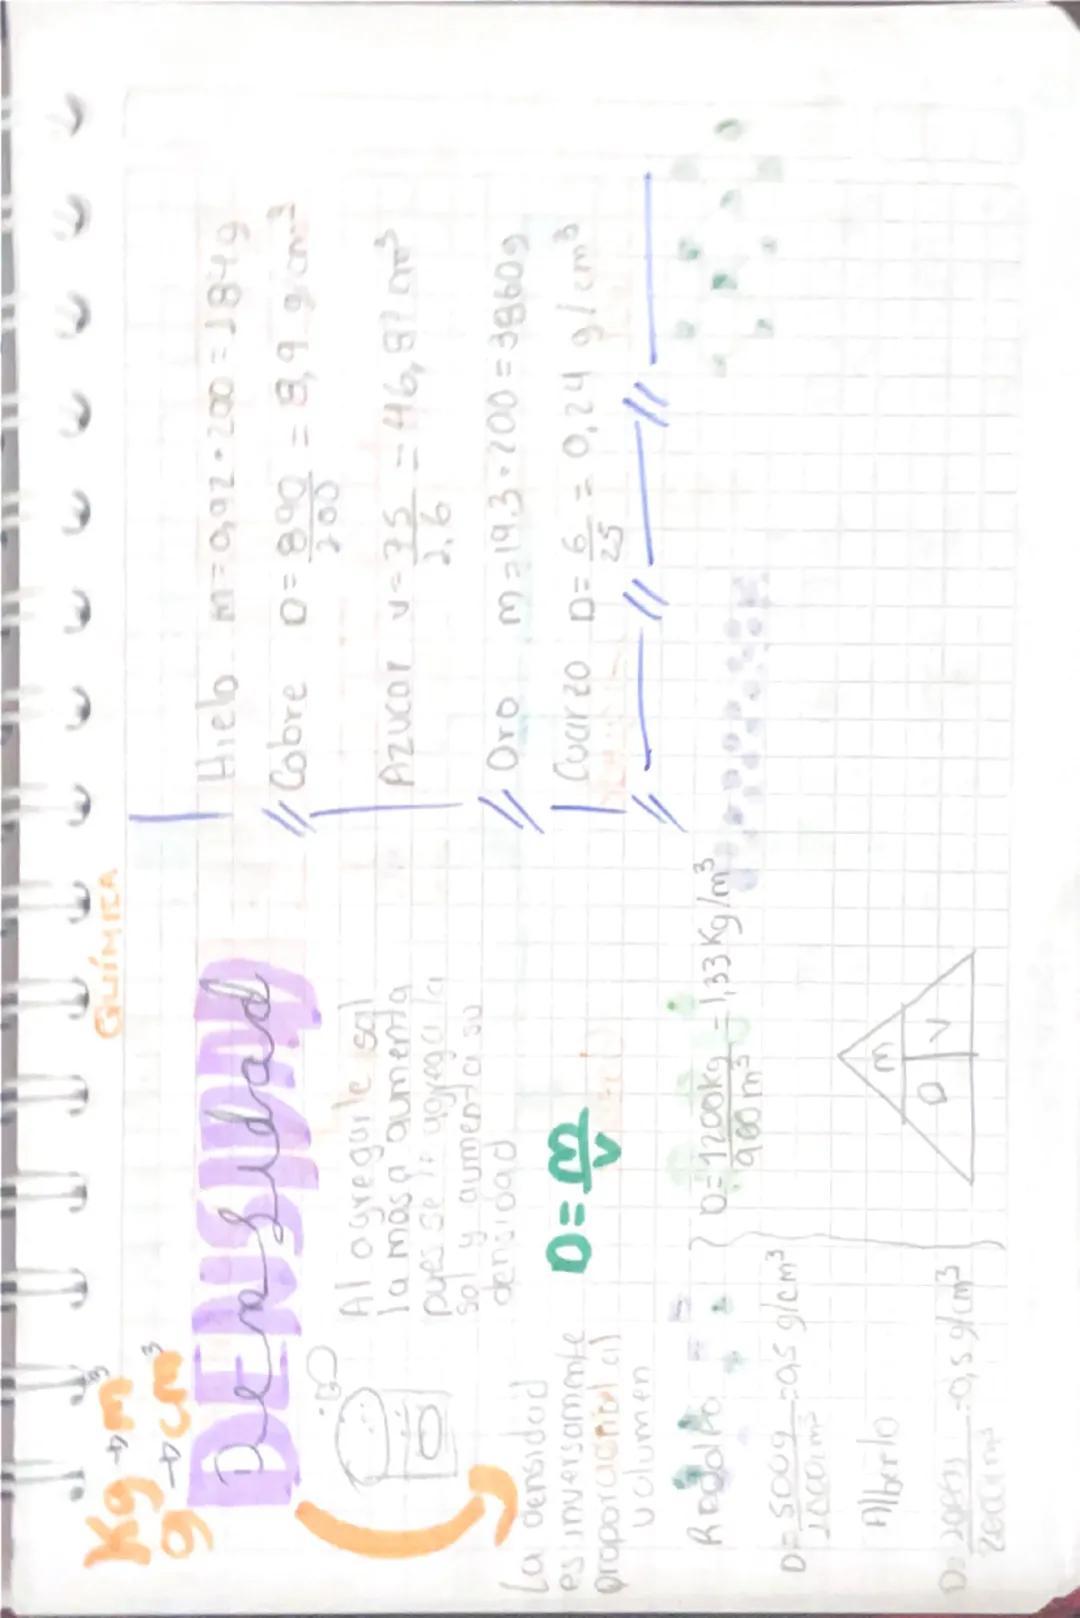 QUÍMICA
Kg → m³
g → cm³
DENSIDAD
Densidad
Al agregarle sal
la masa aumenta
pues se le agrega la
sal y aumenta su
densidad
La densidad
es inversamente
proporcional al
volumen
D = m/v
Rodolfo
D = 500g/1000cm³ = 0,5 g/cm³
Alberto
D = /2000cm³ = 0,5 g/cm³
D = 1200kg/900m³ = 1,33 Kg/m³
m
D V
Hielo m = 0,92 · 200 = 184g
Cobre D = 890/200 = 8,9 g/cm³
Azucar v = 75/1,6 = 46,87 cm³
Oro m = 19,3 · 200 = 3860g
Cuarzo D = 6/25 = 0,24 g/cm³